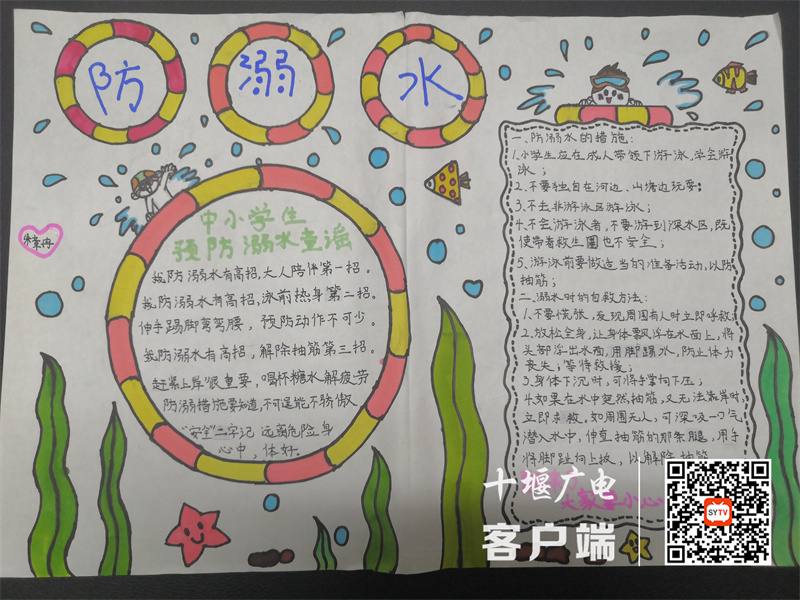 防 溺 水
中小学生
预防溺水童谣
我防溺水有高招,大人陪伴第一招。
我防溺水有高招,泳前热身第二招。
伸手踢脚弯弯腰,预防动作不可少。
我防溺水有高招,解除抽筋第三招。
赶紧上岸很重要,喝杯糖水解疲劳
防溺措施要知道,不可逞能不骄傲
"安全"二字记 远离危险 身
心中,体好。
一、防溺水的措施:
1.小学生应在成人带领下游泳,学会游
泳;
2.不要独自在河边、山塘边玩耍;
3.不去非游泳区游泳;
4.不会游泳者,不要游到深水区,既
使带着救生圈也不安全;
5.游泳前要做适当的准备活动,以防
抽筋;
二、溺水时的自救方法:
1.不要慌张,发现周围有人时立即呼救;
2.放松全身,让身体飘浮在水面上,将
头部浮出水面,用脚踢水,防止体力
丧失,等待救援;
3.身体下沉时,可将手掌向下压;
4.如果在水中突然抽筋,又无法靠岸时,
立即求救。如周围无人,可深吸一口气
潜入水中,伸直抽筋的那条腿,用手
将脚趾向上扳,以解除抽筋
大家 小心
十堰广电
客户端
SYTV